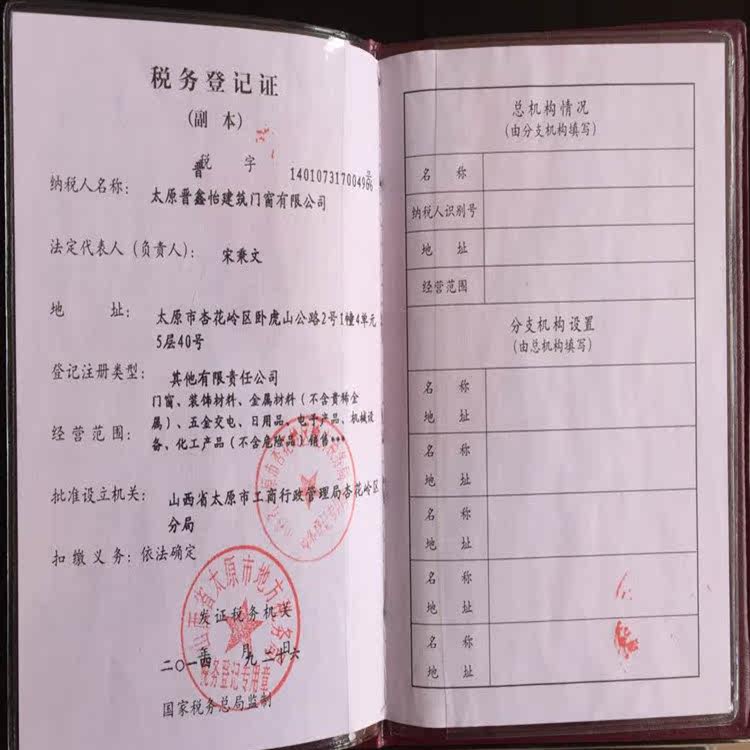 税务登记证
(副 本)
晋 税 字 140107317004966 号
纳税人名称: 太原晋鑫怡建筑门窗有限公司
法定代表人(负责人): 宋秉文
地 址: 太原市杏花岭区卧虎山公路2号1幢4单元
5层40号
登记注册类型: 其他有限责任公司
经营范围: 门窗、装饰材料、金属材料(不含贵稀金
属)、五金交电、日用品、电子产品、机械设
备、化工产品(不含危险品)销售***
批准设立机关: 山西省太原市工商行政管理局杏花岭区
分局
扣缴义务: 依法确定
发证税务机关
二〇一四 年 九 月 二十六 日
税务登记专用章
国家税务总局监制
总机构情况
(由分支机构填写)
名 称
纳税人识别号
地 址
经营范围
分支机构设置
(由总机构填写)
名 称
地 址
名 称
地 址
名 称
地 址
名 称
地 址
名 称
地 址